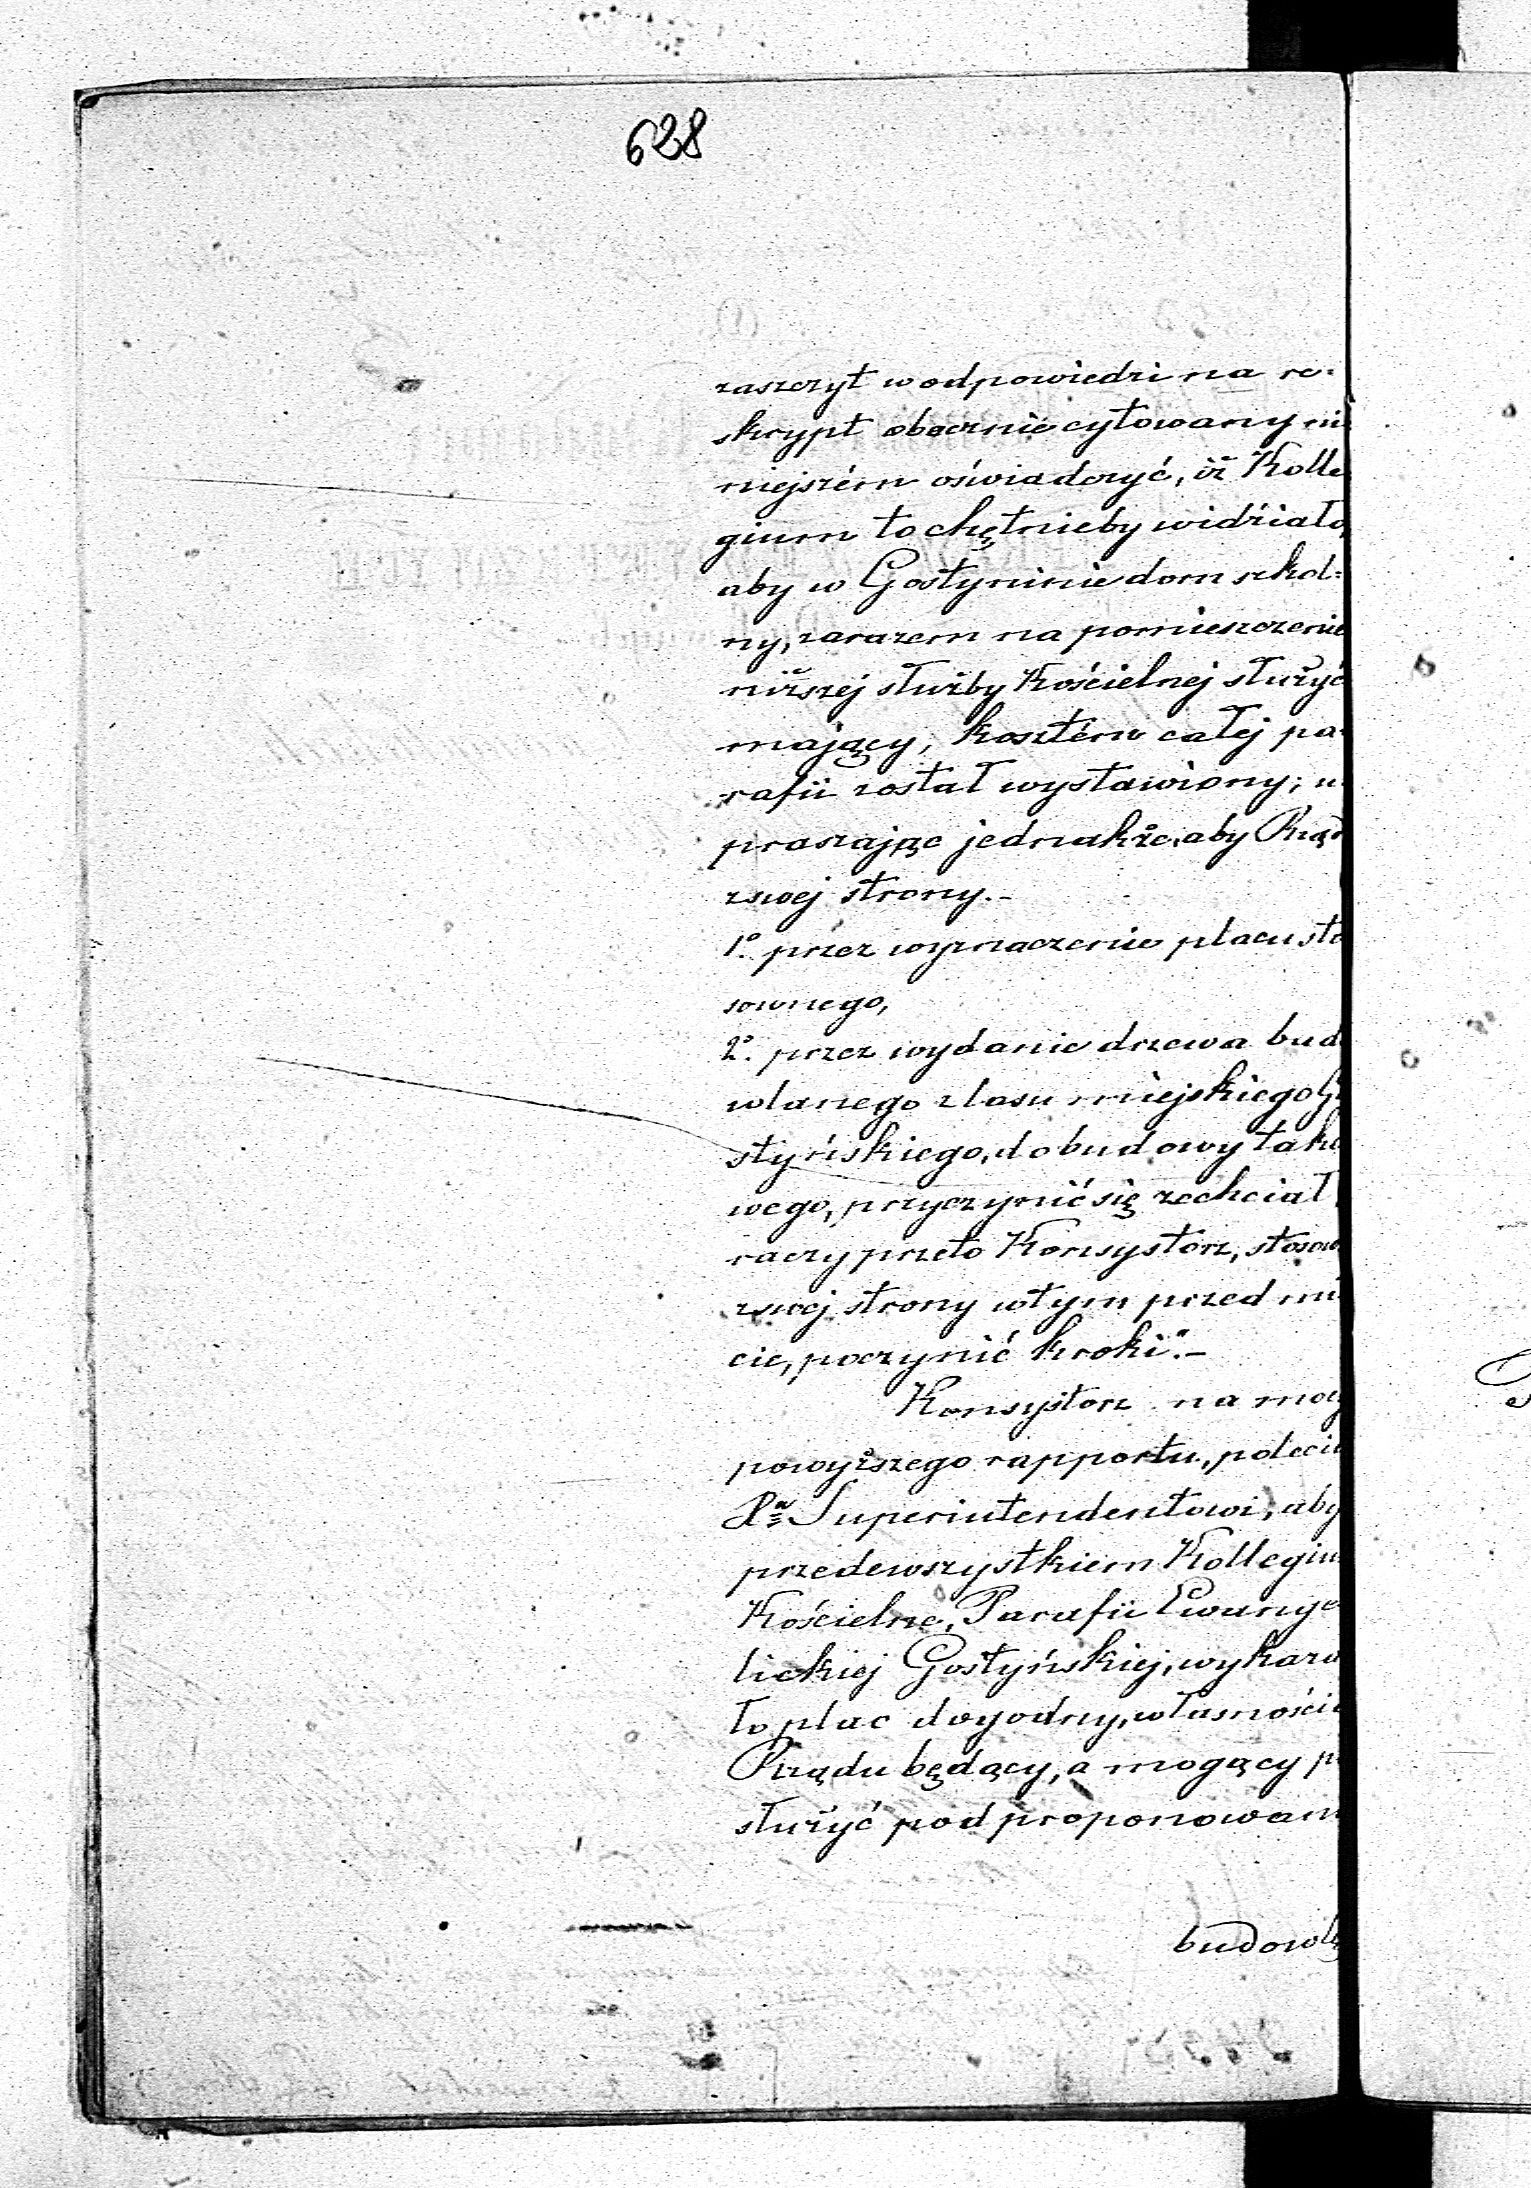 628
zaszczyt w odpowiedzi na re-
skrypt obocznie cytowany ni
niejszém oświadczyć, iż Kolle
gium to chętnieby widziało,
aby w Gostyninie dom szkol=
ny, zarazem na pomieszczenie
niższej służby Kościelnej służyć
mający, kosztém całej pa-
rafii został wystawiony; u
praszając jednakże, aby Rząd
z swej strony.-
1º. przez wyznaczenie placu sto
sownego,
2º. przez wydanie drzewa budo
wlanego z lasu miejskiego Go
styńskiego, do budowy tako
wego, przyczynić się zechciał
raczy przeto Konsystorz, stosow
z swej strony w tym przedmi
cie, poczynić kroki".-
Konsystorz na mocy
powyższego rapportu, polecił
Pu Superintendentowi, aby
przedewszystkiem Kollegium
Kościelne, Parafii Ewange
lickiej Gostyńskiej, wykaza
ło plac dogodny, własności
Rządu będący, a mogący po
służyć pod proponowan
budowlę